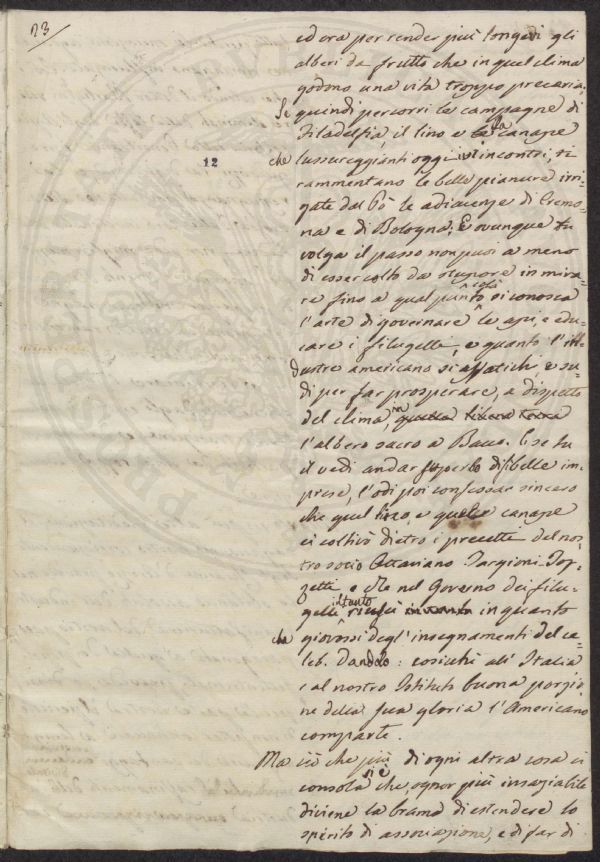 23/
ed ora per render più longevi gli
alberi da frutto che in quel clima
godono una vita troppo precaria.
Se quindi percorri le campagne di
Filadelfia, il lino e la canape
che lussureggianti oggi incontri, ti
12
rammentano le belle pianure irri=
gate dal Pò le adiacenze di Cremo=
na e di Bologna; E ovunque tu
volga il passo non puoi a meno
di esser colto da stupore in mira=
re fino a qual punto costì si conosca
l'arte di governare le api, e edu=
care i filugelli, e quanto l'in=
dustre americano si affatichi, e su=
di per far prosperare, a dispetto
del clima, in quella libera terra
l'albero sacro a Bacco. E se tu
il vedi andar superbo di sì belle im=
prese, l'odi poi confessar sincero
che quel lino, e quelle canape
ei coltivò dietro i precetti del no=
stro socio Ottaviano Targioni Toz=
zetti, e che nel Governo dei filu=
gelli intanto riuscì in quanto
che giovossi degl'insegnamenti del ce=
leb. Dandolo: cosicchè all'Italia
e al nostro Istituto buona porzio=
ne della sua gloria l'Americano
comparte.
Ma ciò che più di ogni altra cosa ci
consola si è che, ognor più insaziabile
diviene la brama di estendere lo
spirito di associazione, e di far di